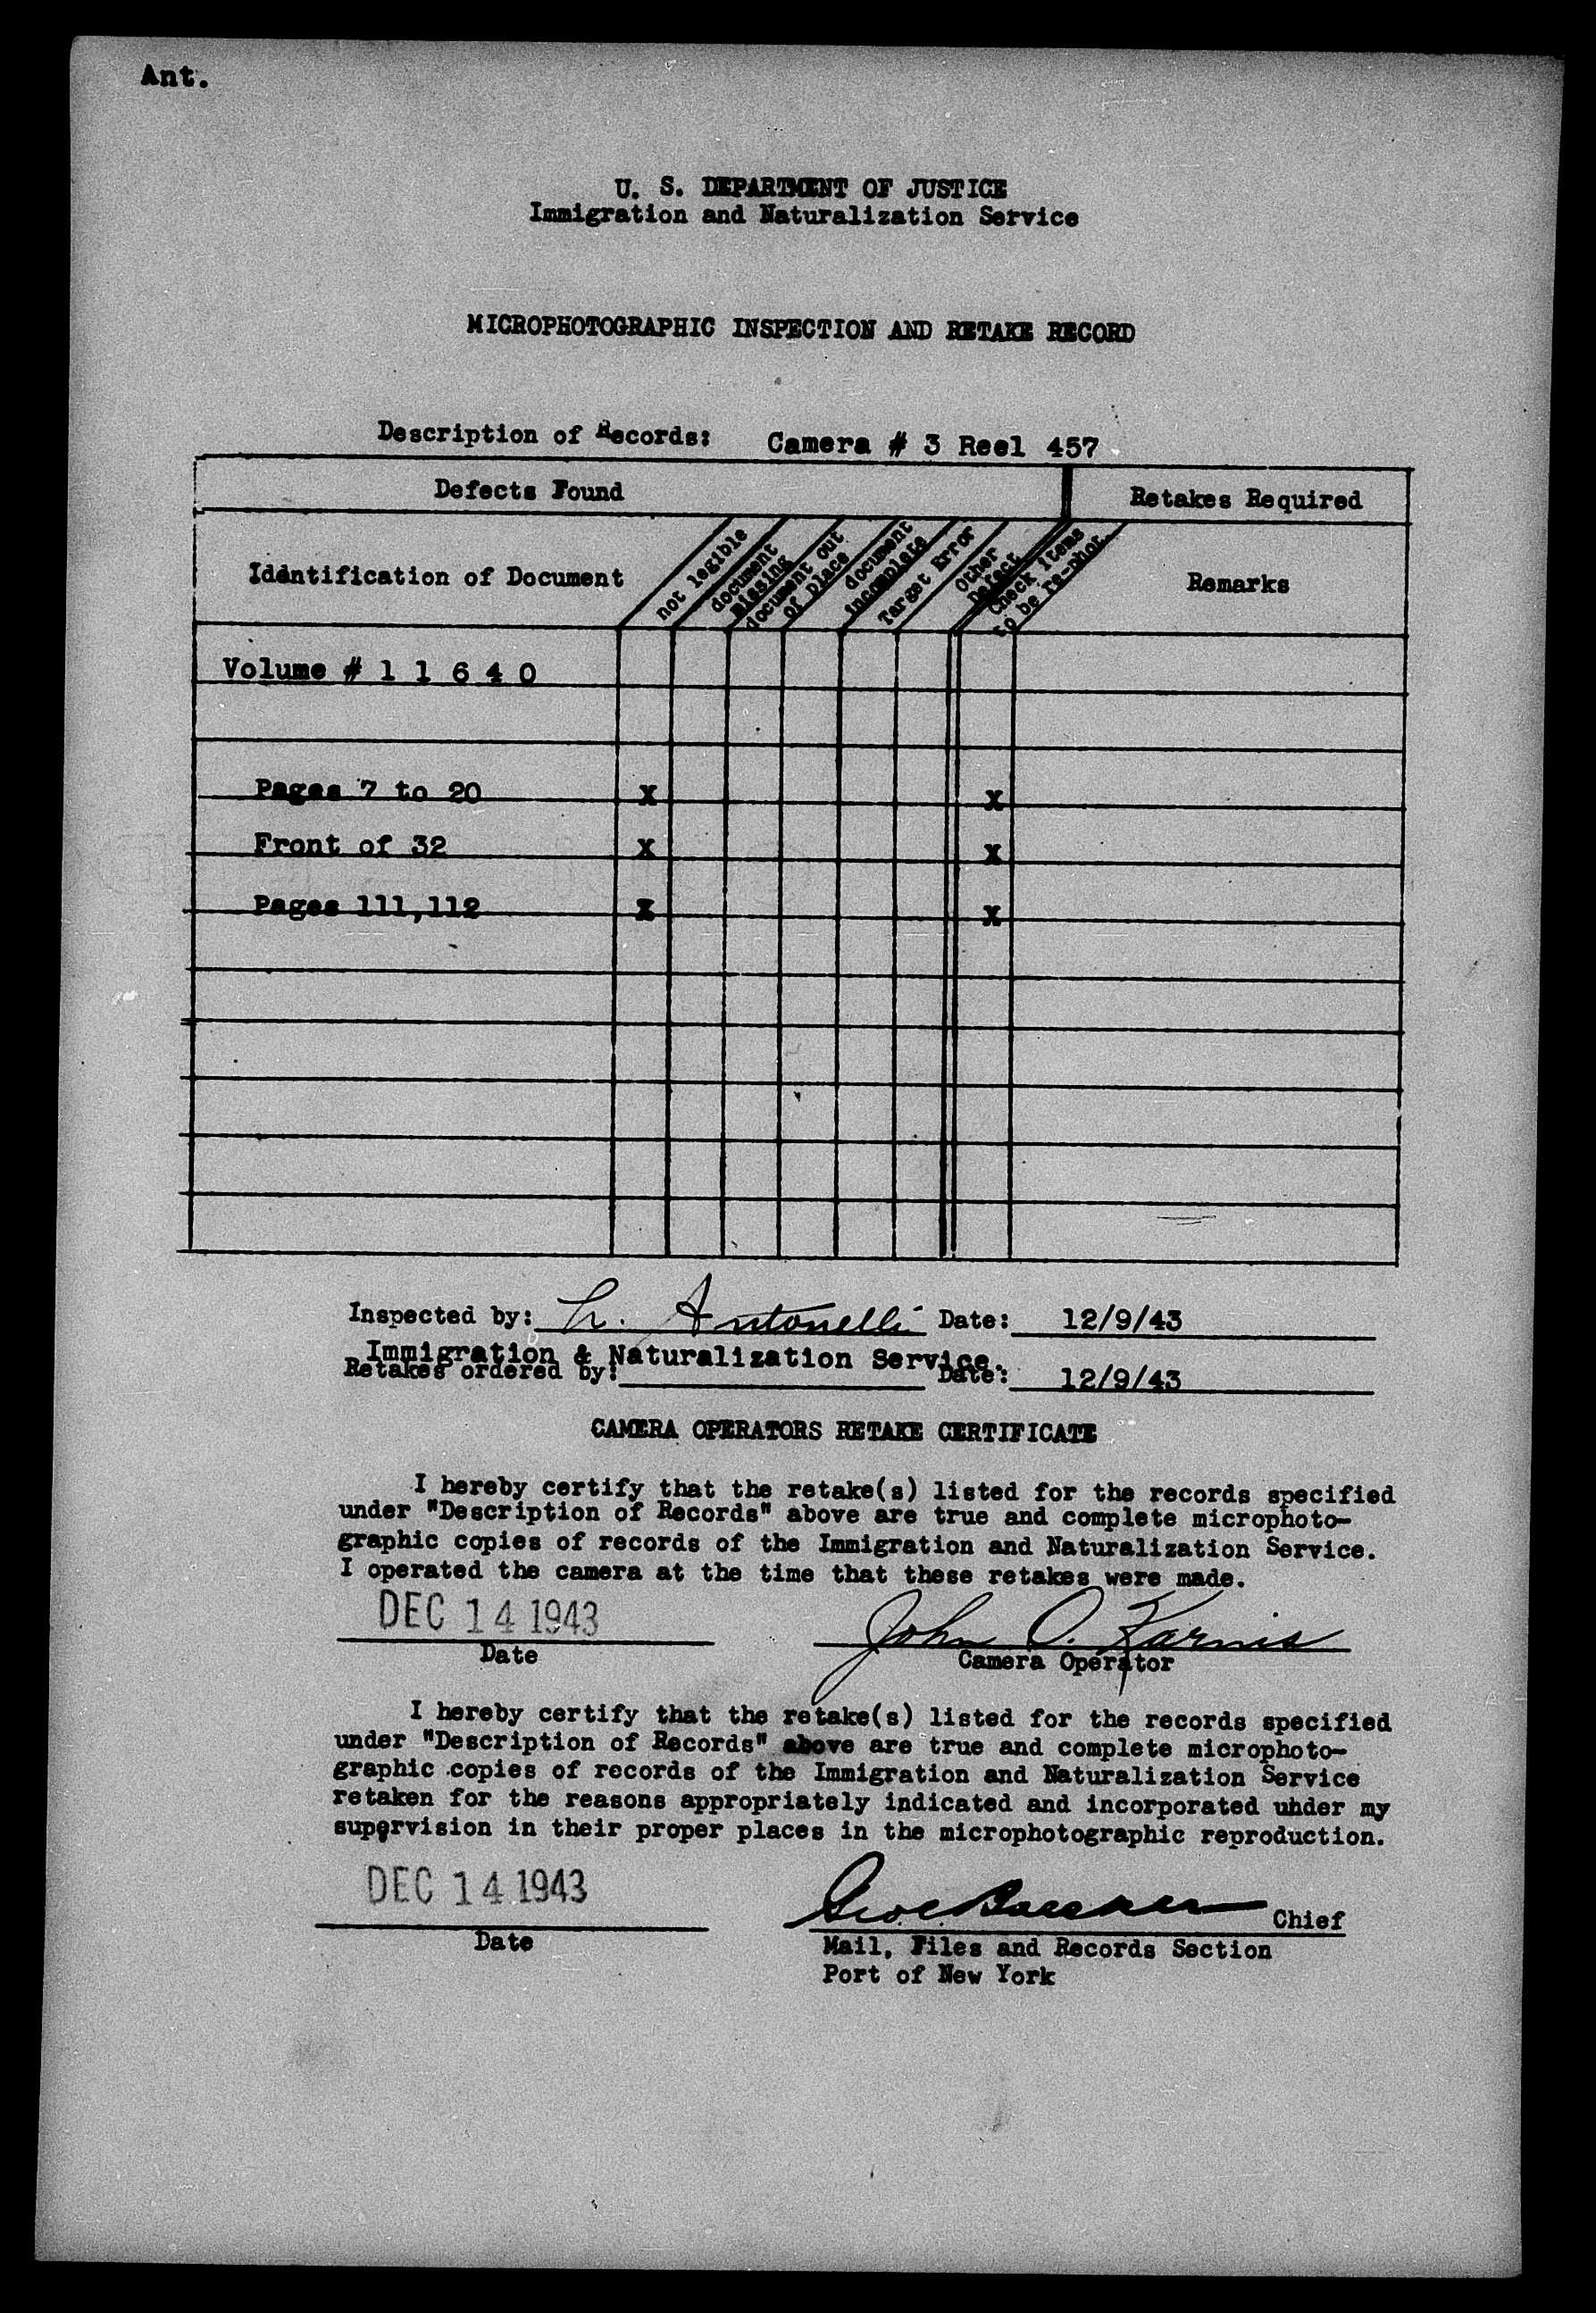 Ant.
U. S. DEPARTMENT OF JUSTICE
Immigration and Naturalization Service
MICROPHOTOGRAPHIC INSPECTION AND RETAKE RECORD
Description of Records: Camera # 3 Reel 457
Defects Found Retakes Required
Identification of Document
not legible
document
missing
document out
of place
document
incomplete
Target Error
Other
Defect
Check items
to be re-phot.
Remarks
Volume # 1 1 6 4 0
Pages 7 to 20 X X
Front of 32 X X
Pages 111,112 X X
Inspected by: L. Antonelli Date: 12/9/43
Immigration & Naturalization Service.
Retakes ordered by: Date: 12/9/43
CAMERA OPERATORS RETAKE CERTIFICATE
I hereby certify that the retake(s) listed for the records specified
under "Description of Records" above are true and complete microphoto-
graphic copies of records of the Immigration and Naturalization Service.
I operated the camera at the time that these retakes were made.
DEC 14 1943 John O. Karnis
Date Camera Operator
I hereby certify that the retake(s) listed for the records specified
under "Description of Records" above are true and complete microphoto-
graphic copies of records of the Immigration and Naturalization Service
retaken for the reasons appropriately indicated and incorporated uhder my
supervision in their proper places in the microphotographic reproduction.
DEC 14 1943 Chief
Date Mail, Files and Records Section
Port of New York